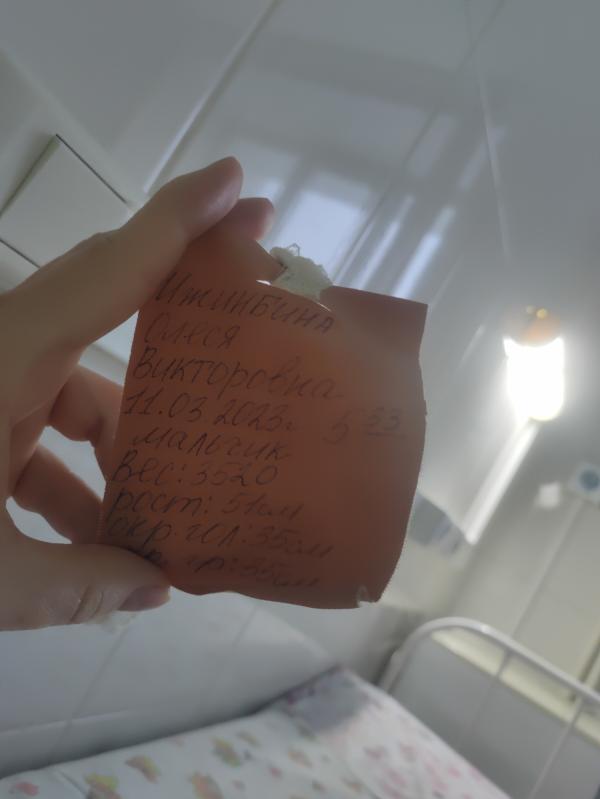 Ижинбина
Олеся
Викторовна
11.03 2023г 5 53
мальчик
Вес: 3520
рост: 51см
окр. гол: 35см
гр: 35см